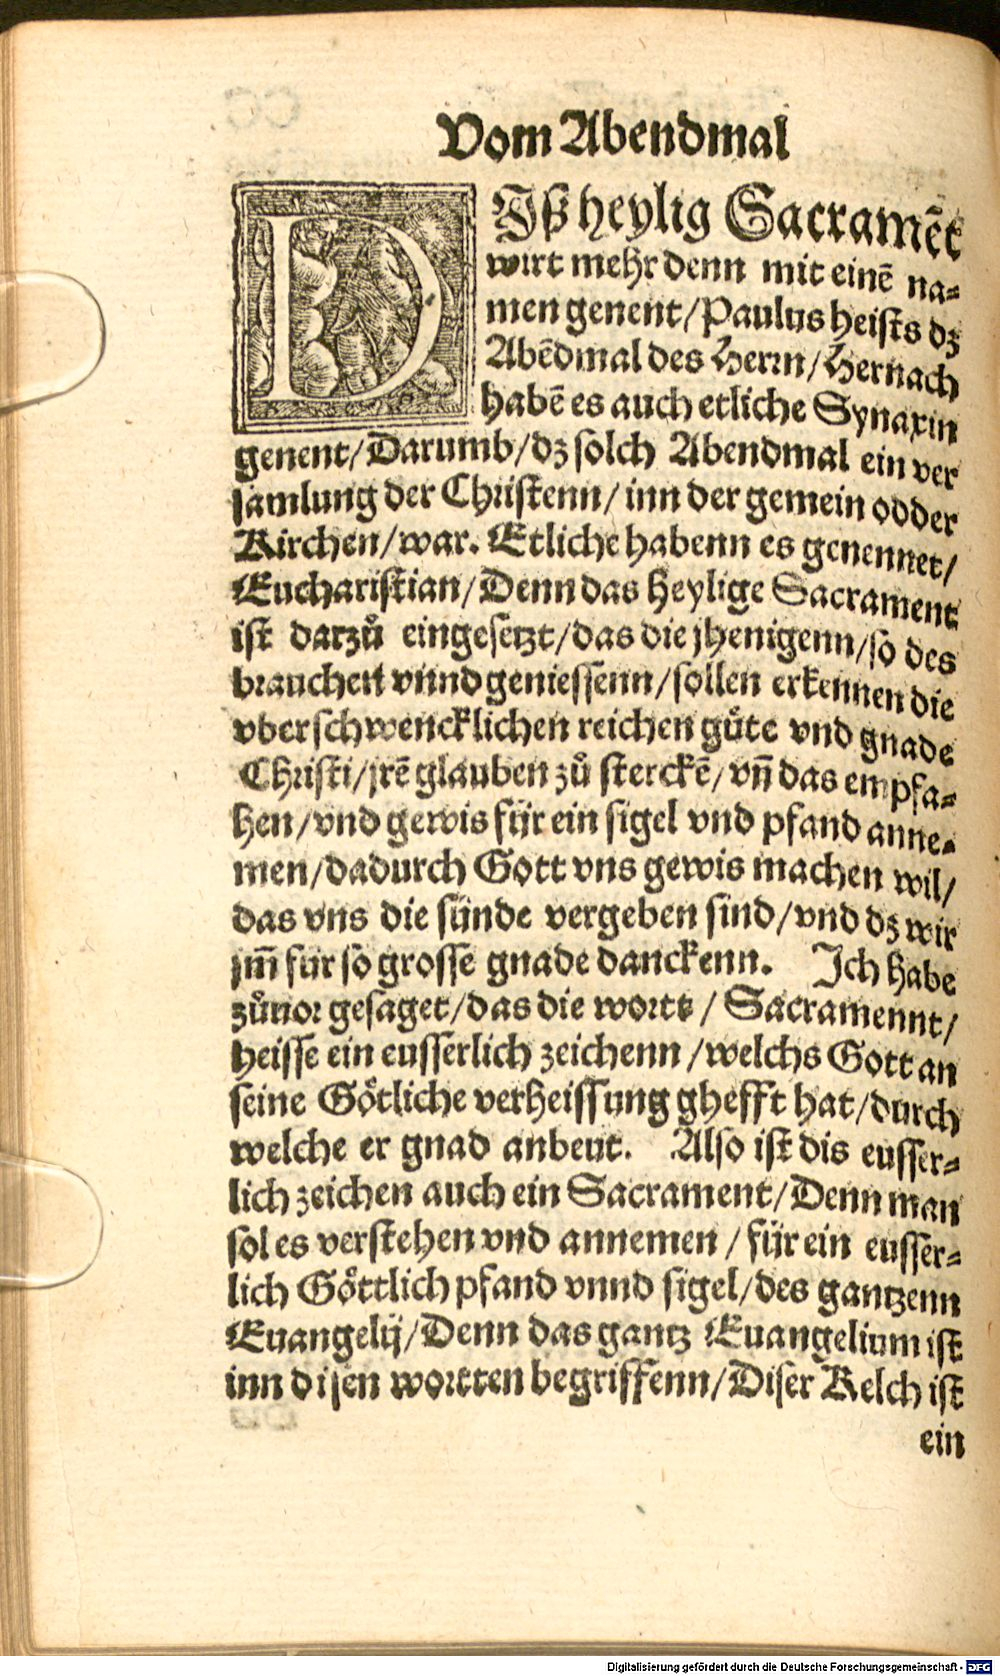 Vom Abendmal
DIß heylig Sacramēt
wirt mehr denn mit einē na-
men genent/Paulus heists dz
Abēdmal des Herrn/Hernach
habē es auch etliche Synaxin
genent/Darumb/dz solch Abendmal ein ver
samlung der Christenn/inn der gemein odder
Kirchen/war. Etliche habenn es genennet/
Eucharistian/Denn das heylige Sacrament
ist darzuͦ eingesetzt/das die jhenigenn/so des
brauchen vnnd geniessenn/sollen erkennen die
vberschwencklichen reichen guͤte vnd gnade
Christi/jrē glauben zuͦ sterckē/vn̄ das empfa-
hen/vnd gewis für ein sigel vnd pfand anne-
men/dadurch Gott vns gewis machen wil/
das vns die sünde vergeben sind/vnd dz wir
jm̄ für so grosse gnade danckenn. Ich habe
zuͦuor gesaget/das die worte/Sacramennt/
heisse ein eusserlich zeichenn/welchs Gott an
seine Goͤtliche verheissung ghefft hat/durch
welche er gnad anbeut. Also ist dis eusser-
lich zeichen auch ein Sacrament/Denn man
sol es verstehen vnd annemen/für ein eusser-
lich Goͤttlich pfand vnnd sigel/des gantzenn
Euangelij/Denn das gantz Euangelium ist
inn disen wortten begriffenn/Diser Kelch ist
ein
Digitalisierung gefördert durch die Deutsche Forschungsgemeinschaft - DFG